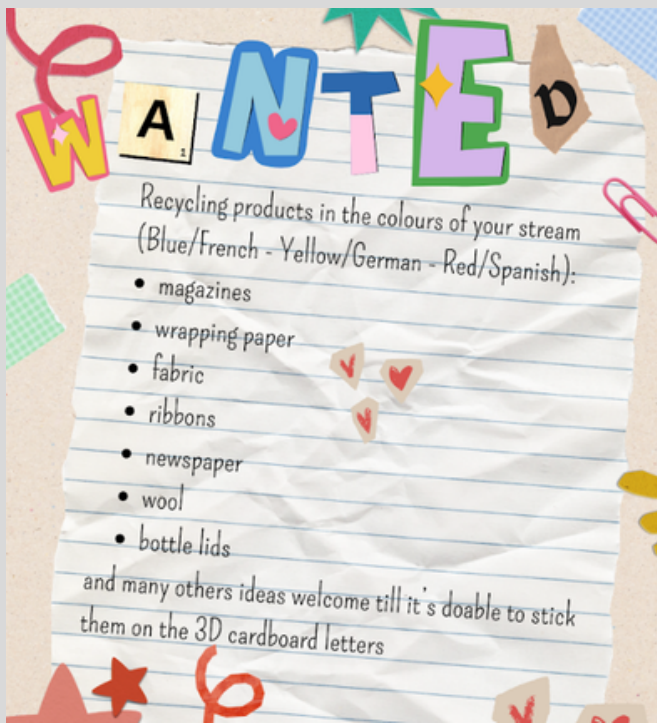 WANTED
Recycling products in the colours of your stream
(Blue/French - Yellow/German - Red/Spanish):
• magazines
• wrapping paper
• fabric
• ribbons
• newspaper
• wool
• bottle lids
and many others ideas welcome till it's doable to stick
them on the 3D cardboard letters